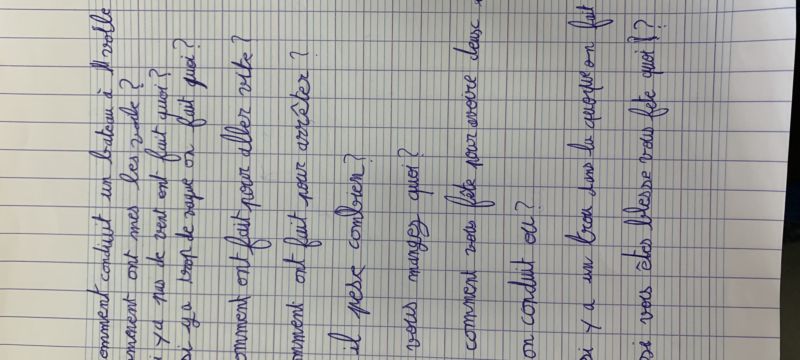 omment conduit un bateau à volle
omment ont mes les voile?
i y a pas de vent ont fait quoi?
si y a trop de vague on fait quoi?
omment ont fait pour aller vite?
omment ont fait pour arrêter?
il pese combien?
vous mangez quoi?
comment vous fête pour avoire de
on conduit ou?
si y a un trou dans la quoque on fait
si vous êtes blesse vous fete quoi!?